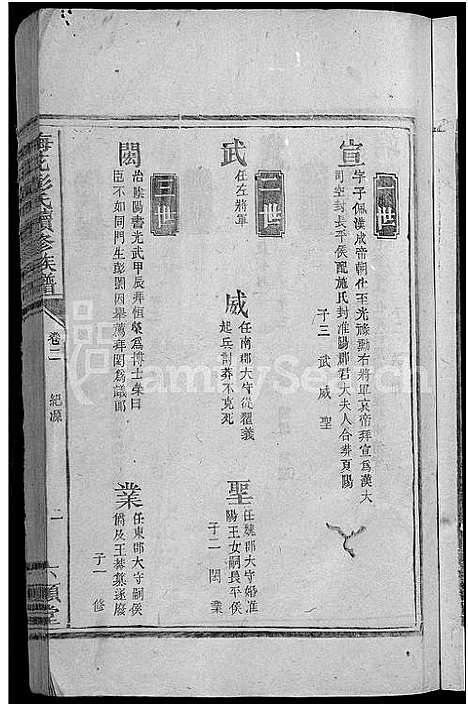 一世
宣
字子佩漢成帝朝仕至光祿勳右將軍哀帝拜宣為漢大
司空封長平侯配施氏封淮陽郡君大夫人合葬頁陽
子三 武 威 聖
二世
武
任左將軍
威
任南郡大守從翟義
起兵討莽不克死
聖
任魏郡大守婚淮
陽王女嗣長平侯
子二 閎 業
三世
閎
治歐陽書光武甲辰拜恒榮為博士榮曰
臣不如同門生彭閎因舉薦拜閎為議郎
業
任東郡大守嗣侯
爵及王莽篡遂廢
子一 修
梅花彭氏續修族譜
卷二 紀源
二
六順堂
FamilySearch